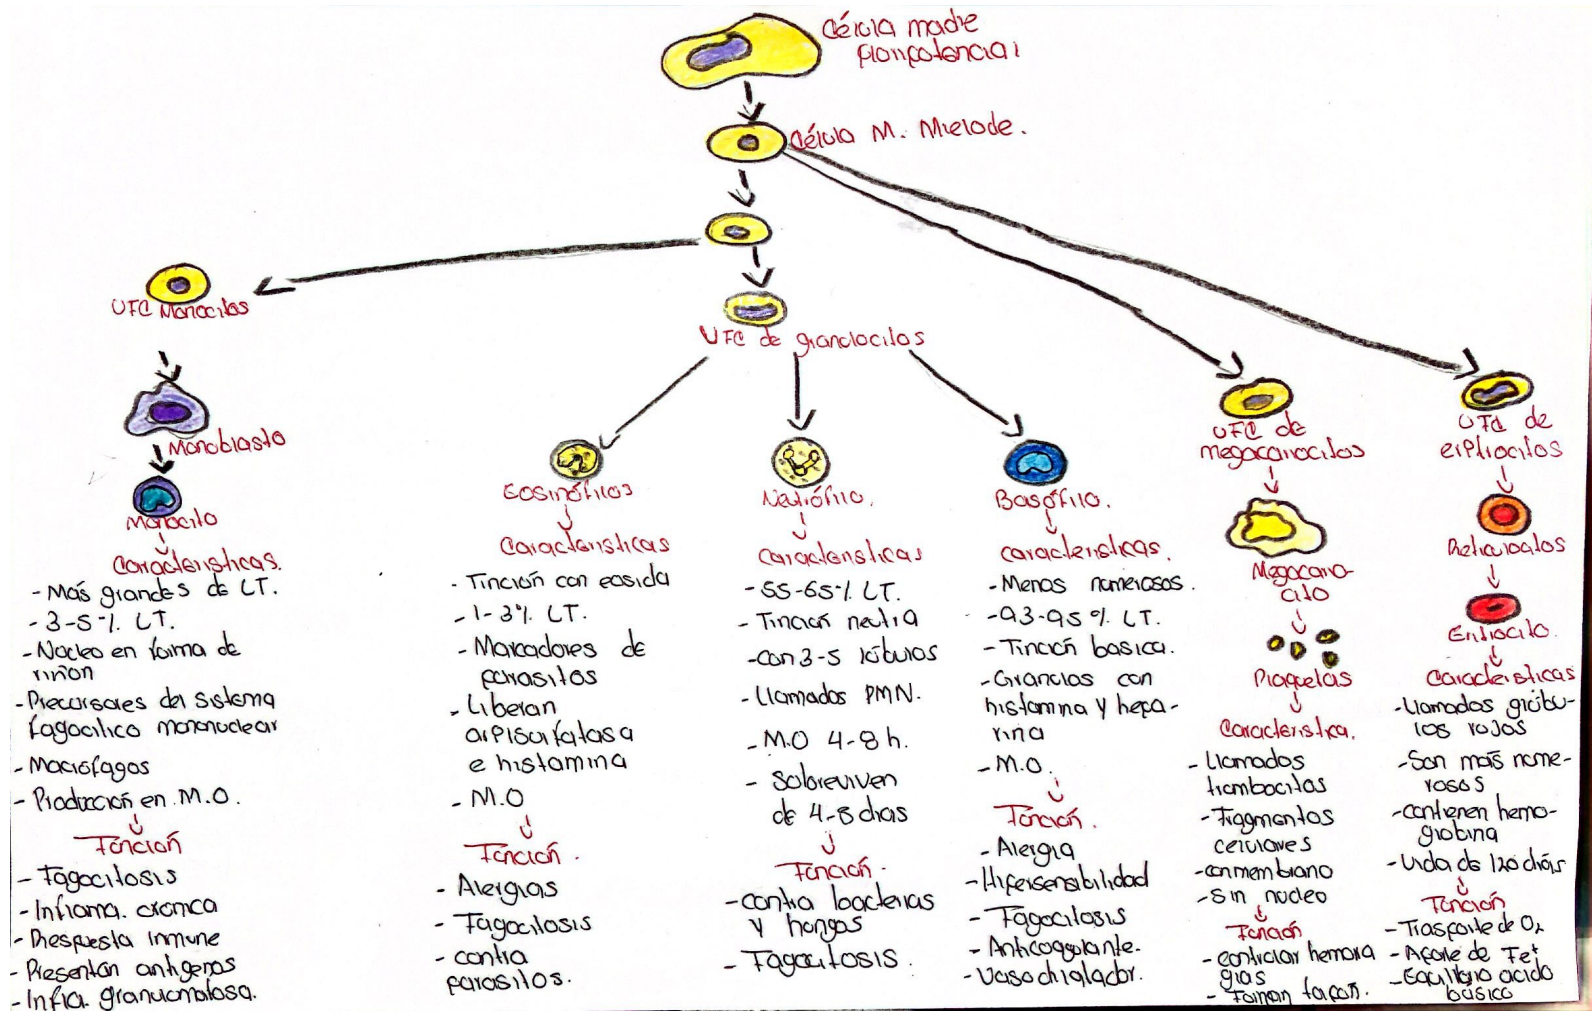 Célula madre
pluripotencial
Célula M. Mielode.
UFC Monocitos
Monoblasto
Monocito
Características.
- Más grandes de LT.
- 3-5% LT.
- Nucleo en forma de
riñon
- Precursores del sistema
fagocitico mononuclear
- Macrófagos
- Producción en M.O.
Función
- Fagocitosis
- Inflama. cronica
- Respuesta inmune
- Presentan antigenos
- Infla. granulomatosa.
UFC de granulocitos
Eosinófilos
Características
- Tinción con eosida
- 1-3% LT.
- Marcadores de
parasitos
- Liberan
arilsulfatasa
e histamina
- M.O
Función.
- Alergias
- Fagocitosis
- contra
parasitos.
Neutrófilo.
Características
- 55-65% LT.
- Tinción neutra
- con 3-5 lóbulos
- Llamados PMN.
- M.O 4-8 h.
- Sobreviven
de 4-8 dias
Función.
- contra bacterias
y hongos
- Fagocitosis.
Basófilo.
características.
- Menos numerosos.
- 0.3-0.5% LT.
- Tinción basica.
- Granulos con
histamina y hepa-
rina
- M.O.
Función.
- Alergia
- Hipersensibilidad
- Fagocitosis
- Anticoagulante.
- Vasodialador.
UFC de
megacariocitos
Megacario-
cito
Plaquetas
Característica.
- Llamados
trombocitos
- Fragmentos
celulares
- con membrano
- Sin nucleo
Función
- controlar hemorra
gias
- Forman tapon.
UFC de
eritrocitos
Reticulocitos
Eritrocito.
Características
- Llamados glóbu-
los rojos
- Son más nume-
rosos
- contienen hemo-
globina
- Vida de 120 días
Función
- Trasporte de O₂
- Aporte de Fe+
- Equilibrio acido
básico